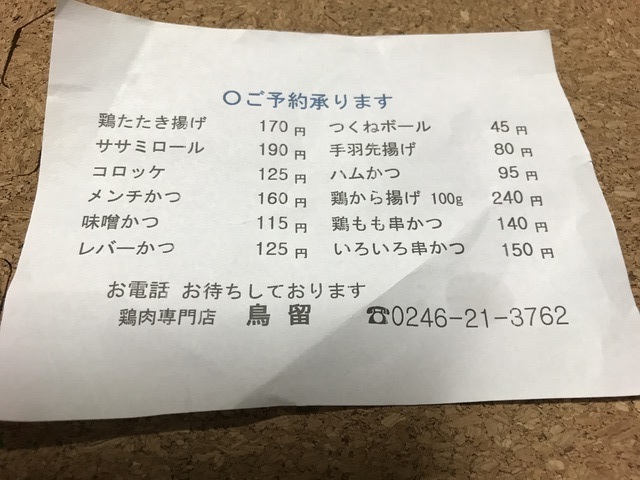 〇ご予約承ります
鶏たたき揚げ 170円 つくねボール 45円
ササミロール 190円 手羽先揚げ 80円
コロッケ 125円 ハムかつ 95円
メンチかつ 160円 鶏から揚げ 100g 240円
味噌かつ 115円 鶏もも串かつ 140円
レバーかつ 125円 いろいろ串かつ 150円
お電話 お待ちしております
鶏肉専門店 鳥留 ☎0246-21-3762